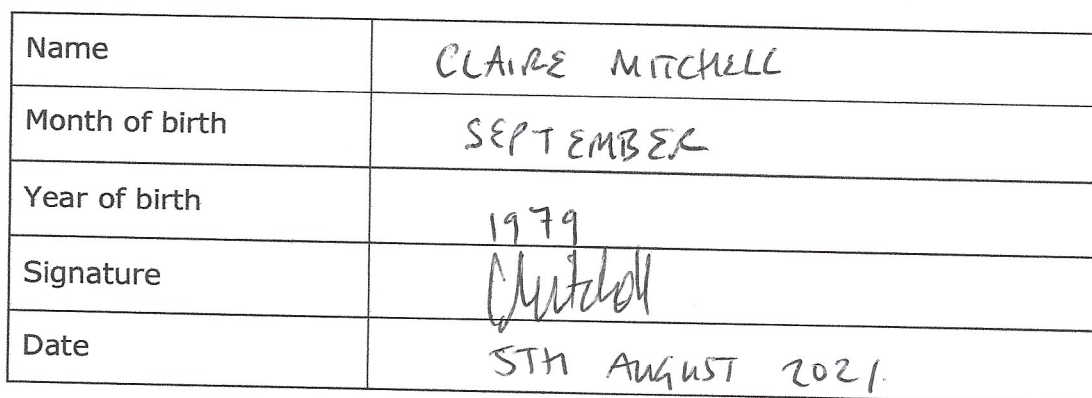 Name CLAIRE MITCHELL
Month of birth SEPTEMBER
Year of birth 1979
Signature CMitchell
Date 5TH AUGUST 2021.